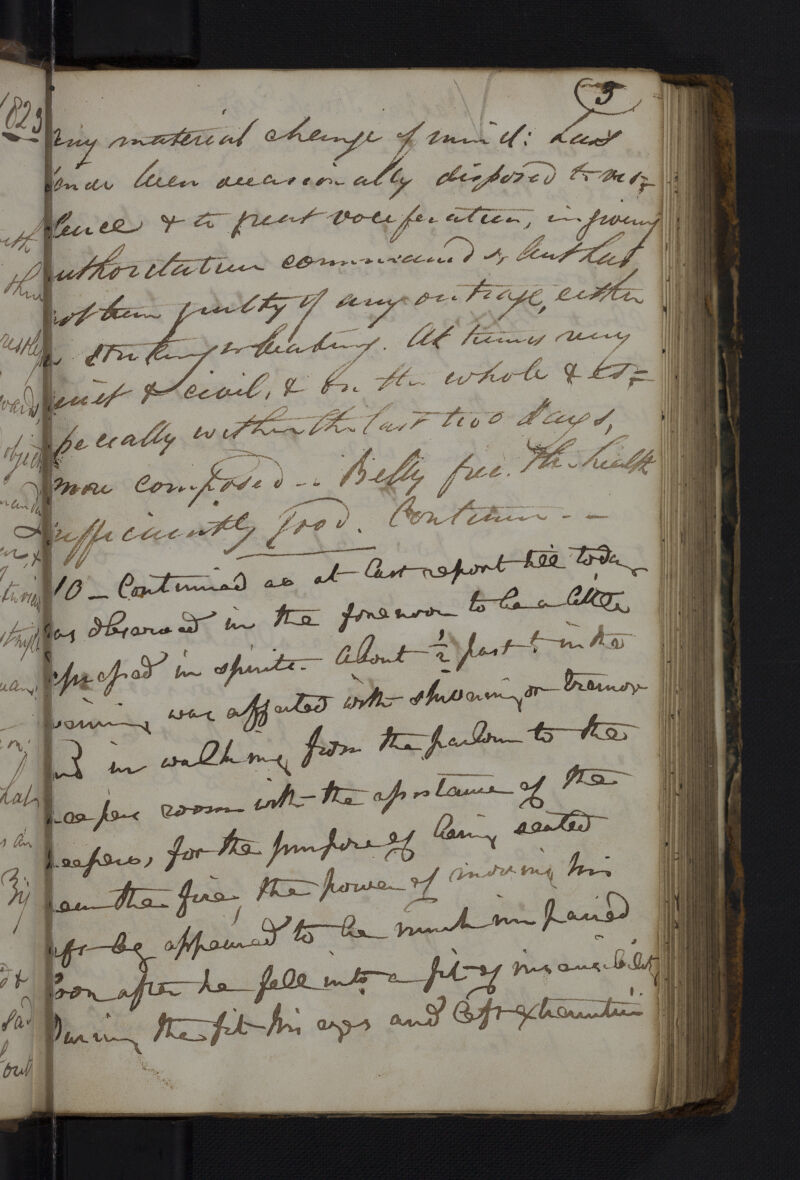 3
any material change of mind: has
been occasionally disposed to vio=
lence & to great vociferation, in giving
authoritative commands, but has
not been guilty of any outrage, either
in striking or beating. At times very
quiet & civil, & on the whole & es=
pecially within the last two days,
more composed -- Belly free. The health
sufficiently good. Continue --
10 - Continued as at last report till today
was observed in the forenoon to be a little
depressed in spirits. About ½ past in the
evening was affected with shivering or tremor
and in walking from the parlour to the
keepers room with the assistance of the
keepers, for the purpose of being seated
near the fire, the power of moving his
left leg appeared to be much impaired
Soon after he fell into a fit of insensibility
During the fit his eyes and left extremities
1823